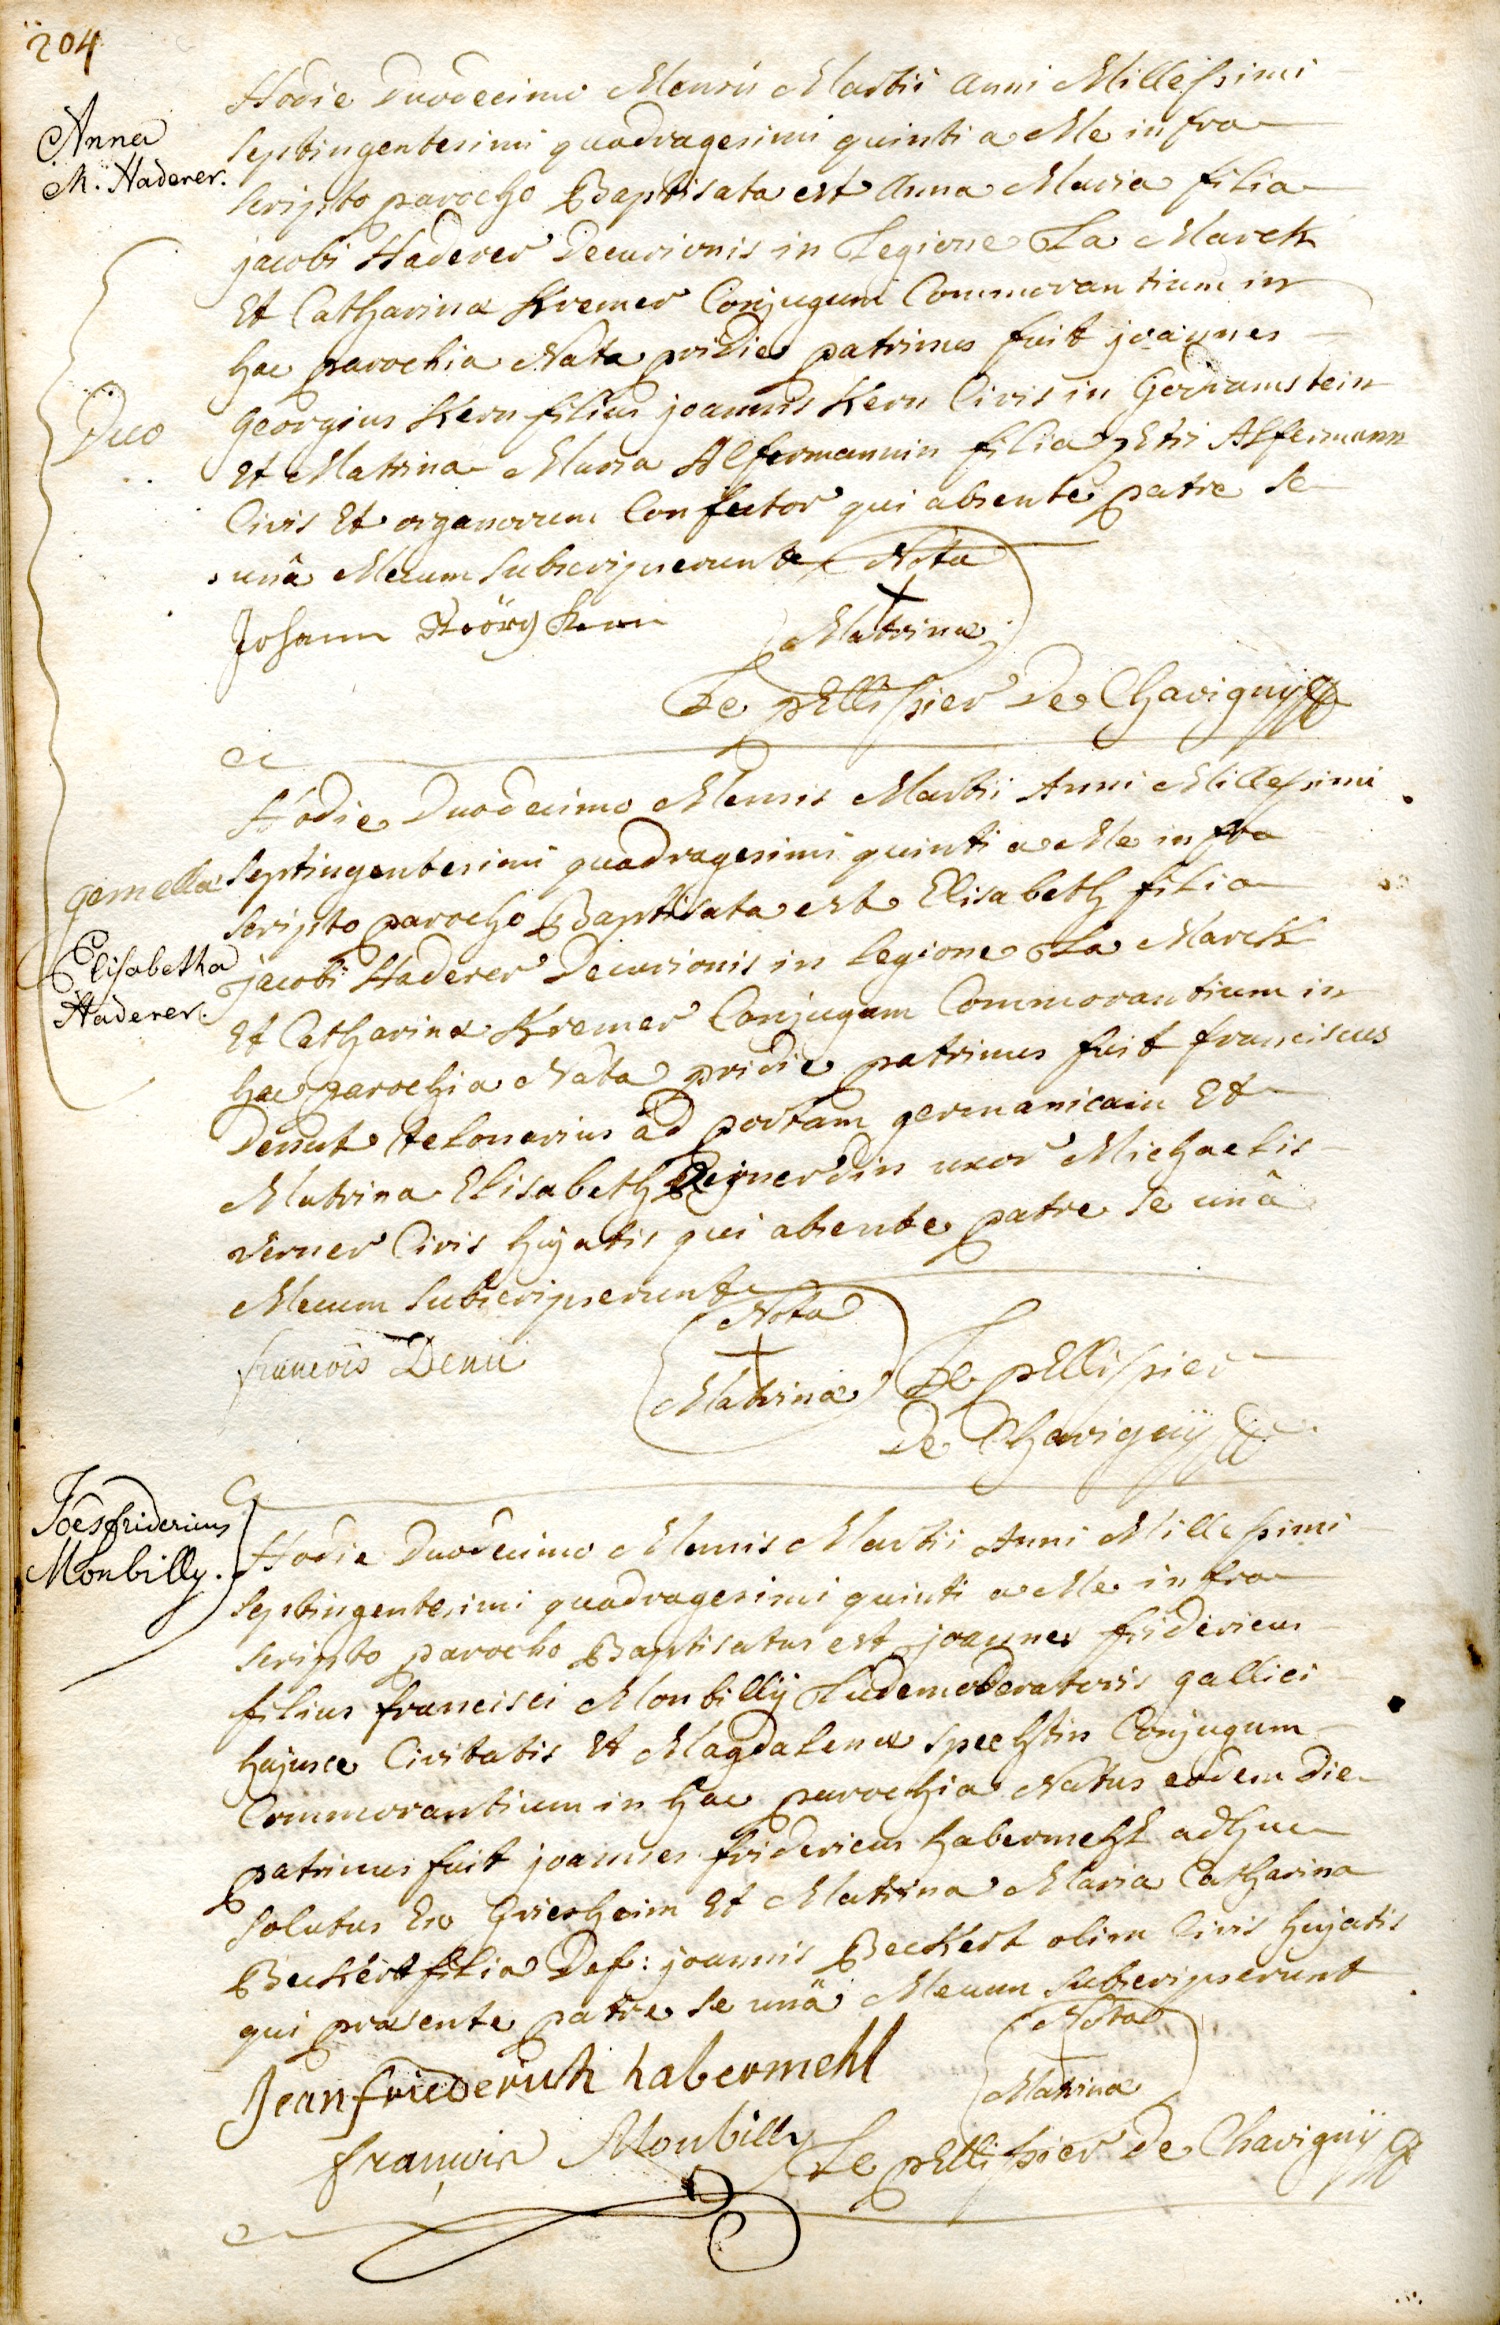 204
Anna
M. Haderer.
Hodie Duodecimo Mensis Martii Anni Millesimi
Septingentesimi quadragesimi quinti a Me infra
scripto parocho Baptisata est Anna Maria filia
jacobi Haderer Decurionis in Legione La Marck
Et Catharinæ Kremer Conjugum Commorantium in
hac parochia Nata pridie patrinus fuit joannes
Duo
georgius Kern filius joannis Kern Civis in
Et Matrina Maria Alfermannin filia petri Alfermann
Civis Et organorum Confector qui absente patre se
unâ Mecum Subscripserunt Nota
Johann Geörg Kern
Matrinæ
Le pellissier De Chavignÿ
Hodie Duodecimo Mensis Martii Anni Millesimi
gemellæ
Septingentesimi quadragesimi quinti a Me infra
scripto parocho Baptisata est Elisabeth filia
Elisabetha
Haderer.
jacobi Haderer Decurionis in legione La Marck
Et Catharinæ Kremer Conjugum Commorantium in
hac parochia Nata pridie patrinus fuit franciscus
telonarius ad portam germanicam Et
Matrina Elisabeth uxor Michaelis
verner Civis hujatis qui absente patre se unâ
Mecum Subscripserunt
Nota
francois Denu
Matrinæ
Le pellissier
De Chavignÿ
Joes fridericus
Monbilly.
Hodie Duodecimo Mensis Martii Anni Millesimi
Septingentesimi quadragesimi quinti a Me infra
scripto parocho Baptisatus est joannes fridericus
filius francisci Monbillÿ Ludemoderatoris gallici
hujusce Civitatis Et Magdalenæ spechtin Conjugum
Commorantium in hac parochia Natus eodem Die
patrinus fuit joannes fridericus habermehl adhuc
solutus Ex Griesheim Et Matrina Maria Catharina
Beckert filia Def: joannis Beckert olim Civis hujatis
qui præsente patre se unâ Mecum Subscripserunt
Nota
Jean friederich habermehl
Matrinæ
françois Monbilly
Le pellissier De Chavignÿ